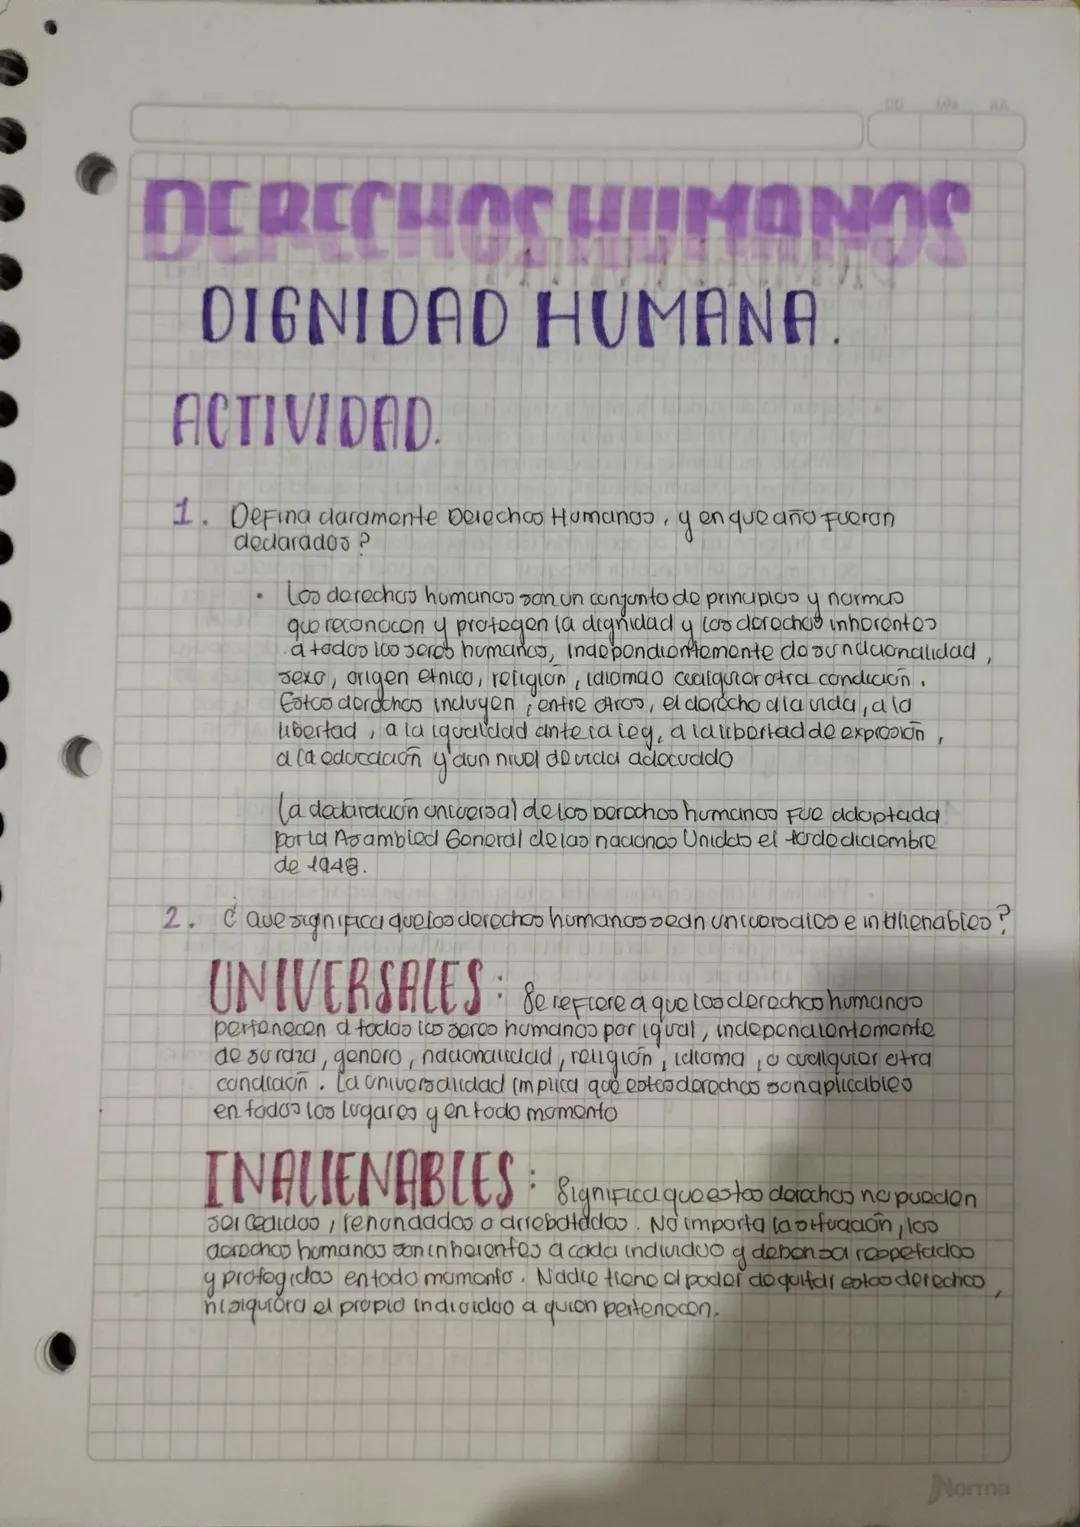 DD MM AA
DERECHOS HUMANOS
DIGNIDAD HUMANA.
ACTIVIDAD.
1. Defina claramente Derechos Humanos, y en que año fueron
declarados?
• Los derechos humanos son un conjunto de principios y normas
que reconocen y protegen la dignidad y los derechos inherentes
a todos los seres humanos, independientemente de su nacionalidad,
sexo, origen etnico, religión, idioma o cualquier otra condición.
Estos derechos incluyen, entre otros, el derecho a la vida, a la
libertad, a la igualdad ante la ley, a la libertad de expresión,
a la educación y a un nivel de vida adecuado
La declaración universal de los Derechos humanos fue adoptada
por la Asamblea General de las naciones Unidas el 10 de diciembre
de 1948.
2. ¿ Que significa que los derechos humanos sean universales e inalienables?
UNIVERSALES: Se refiere a que los derechos humanos
pertenecen a todos los seres humanos por igual, independientemente
de su raza, genero, nacionalidad, religión, idioma, o cualquier otra
condición. La universalidad implica que estos derechos son aplicables
en todos los lugares y en todo momento
INALIENABLES: Significa que estos derechos no pueden
ser cedidos, renunciados o arrebatados. No importa la situación, los
derechos humanos son inherentes a cada individuo y deben ser respetados
y protegidos en todo momento. Nadie tiene el poder de quitar estos derechos,
ni siquiera el propio individuo a quien pertenecen.
Norma